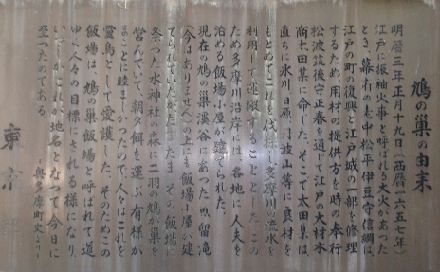 鳩の巣の由来
明暦三年正月十九日(西暦一六五七年)
江戸に振袖火事と呼ばれる大火があった
とき、幕府の老中松平伊豆守信綱は、
江戸の町の復興と江戸城の一部を修理
するため、用材の提供方を時の奉行
松波筑後守正春を通して江戸の大材木
商太田某に命じた。そこで太田某は、
直ちに氷川日原 山等に良材を
もとめてこれを伐採し多摩川の流水を
利用して運 することとした。この
ため多摩川沿岸には各地に人夫を
泊める飯場小屋が建てられた
現在の鳩の巣渓谷にあった 留 滝
(今はありません)の上にも飯場小屋が建
てられていたがたまたまその飯場に
あった水神社の森に二羽の鳩が巣を
営んでいて、朝夕餌を運ぶ有様が
まことに睦ましかったので人々はこれを
霊鳥として愛護した。そのためこの
飯場は、鳩の巣飯場と呼ばれて道
ゆく人々の目標にされる様になり、
いつしかこれが地名となって今日に
至ったのである。
-奥多摩町史より-
東京